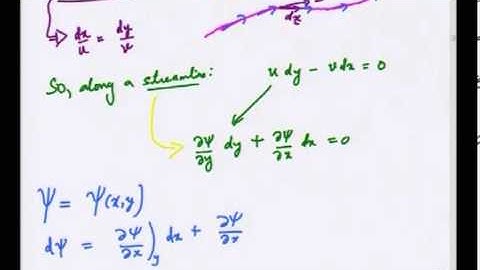 ⇒ dx/u = dy/v
dx
So, along a streamline:
u dy − v dx = 0
∂Ψ/∂y dy + ∂Ψ/∂x dx = 0
Ψ = Ψ(x,y)
dΨ = ∂Ψ/∂x)y dx + ∂Ψ/∂x